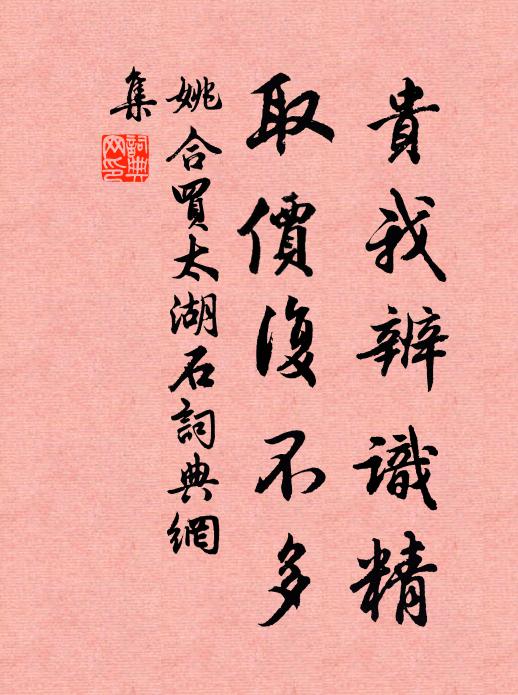 貴我辨識精
取價復不多
姚合買太湖石詞典網
集
詞典
网印